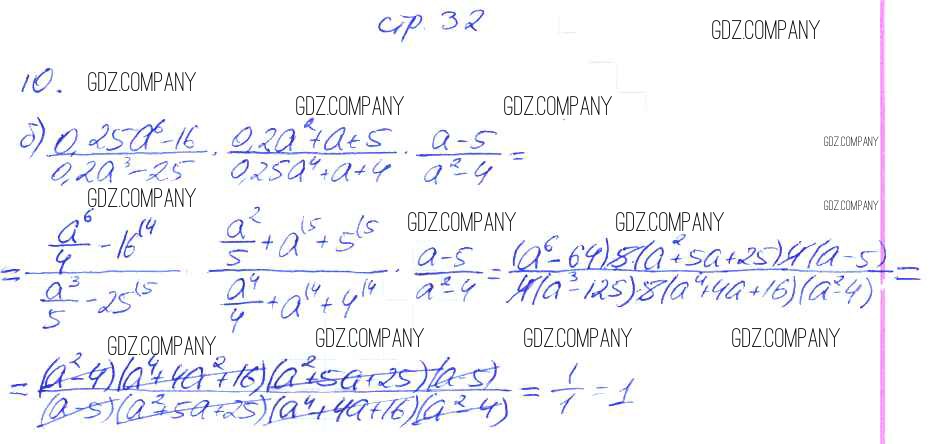 стр. 32
GDZ.COMPANY
10. GDZ.COMPANY
GDZ.COMPANY GDZ.COMPANY
б) (0,25a⁶-16)/(0,2a³-25) · (0,2a²+a+5)/(0,25a⁴+a+4) · (a-5)/(a²-4) =
GDZ.COMPANY
GDZ.COMPANY
GDZ.COMPANY
GDZ.COMPANY GDZ.COMPANY
= (a⁶/4 - 16⁽⁴)/(a³/5 - 25⁽⁵) · (a²/5 + a⁽⁵ + 5⁽⁵)/(a⁴/4 + a⁽⁴ + 4⁽⁴) · (a-5)/(a²-4) = ((a⁶-64)5(a²+5a+25)4(a-5))/(4(a³-125)5(a⁴+4a+16)(a²-4)) =
GDZ.COMPANY GDZ.COMPANY GDZ.COMPANY GDZ.COMPANY
= ((a²-4)(a⁴+4a²+16)(a²+5a+25)(a-5))/((a-5)(a²+5a+25)(a⁴+4a+16)(a²-4)) = 1/1 = 1